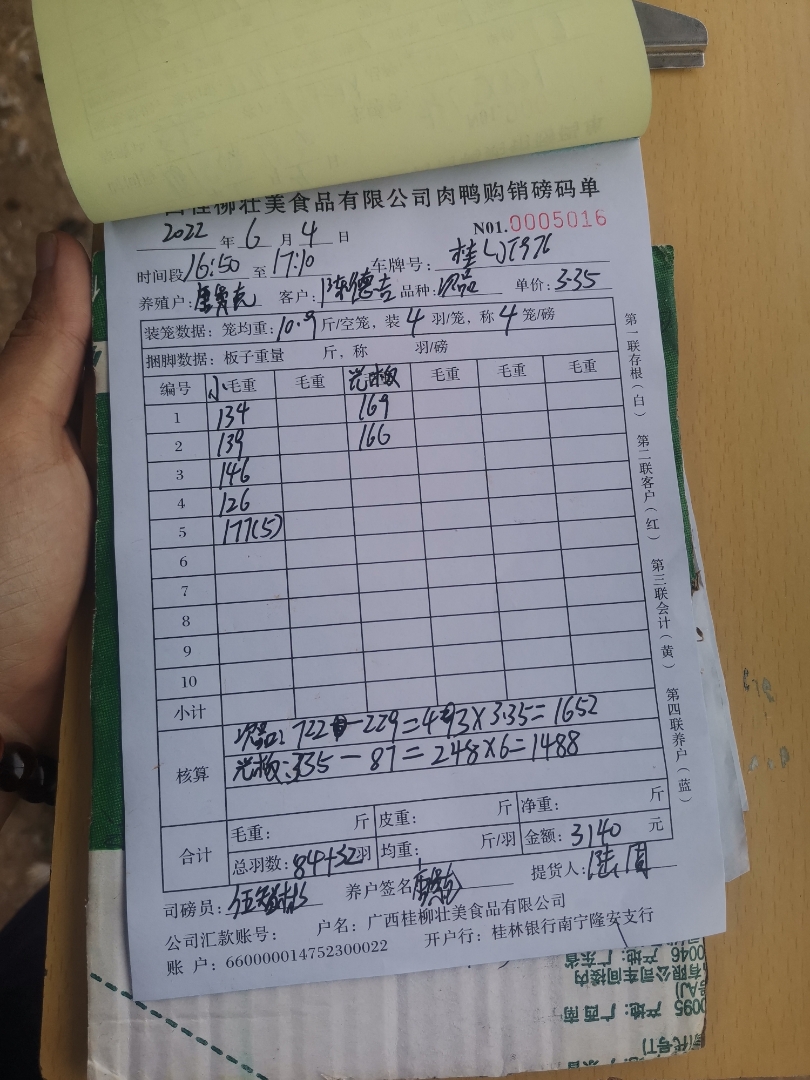 桂柳壮美食品有限公司肉鸭购销磅码单
2022 年 6 月 4 日 N01.0005016
时间段 16:50 至 17:10 车牌号:
养殖户: 客户: 陈德吉 品种: 次品 单价: 3.35
装笼数据: 笼均重: 10.9 斤/空笼, 装 4 羽/笼, 称 4 笼/磅
捆脚数据: 板子重量 斤, 称 羽/磅
编号 小毛重 毛重 光板 毛重 毛重 毛重
1 134 169
2 139 166
3 146
4 126
5 177(5)
6
7
8
9
10
小计
核算 次品: 722-229=493×3.35=1652
光板: 335-87=248×6=1488
合计 毛重: 斤 皮重: 斤 净重: 斤
总羽数: 84+32羽 均重: 斤/羽 金额: 3140 元
司磅员: 养户签名 提货人:
公司汇款账号: 户名: 广西桂柳壮美食品有限公司
账 户: 660000014752300022 开户行: 桂林银行南宁隆安支行
第一联存根(白) 第二联客户(红) 第三联会计(黄) 第四联养户(蓝)
0046 产地: 广东省
有限公司车间楼内
0095 产地: 广西南